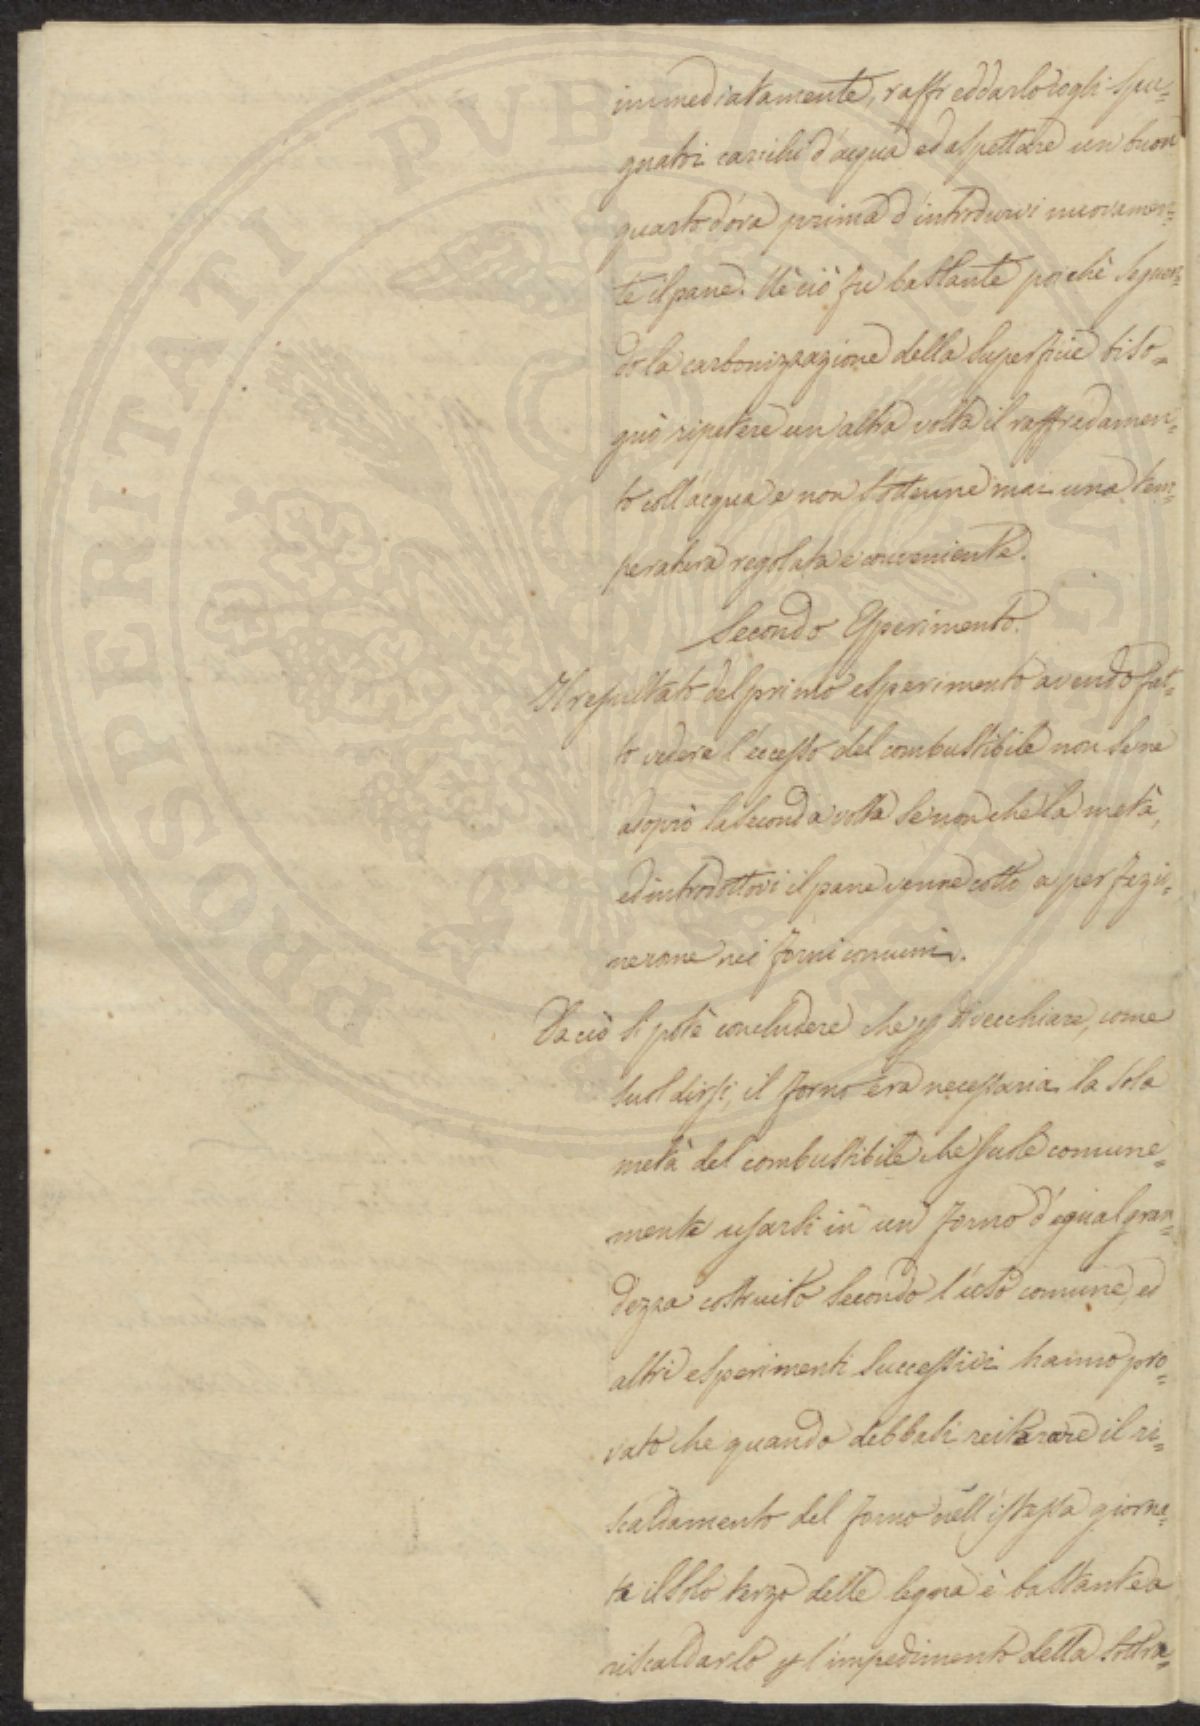 immediatamente, raffreddarlo cogli spu=
gnatoi carichi d'acqua ed aspettare un buon
quarto d'ora prima d'introdurvi nuovamen=
te il pane. Nè ciò fu bastante poichè seguen=
do la carbonizzazione della superficie biso=
gnò ripetere un'altra volta il raffredamen=
to coll'acqua e non s'ottenne mai una tem=
peratura regolata e conveniente.
Secondo Esperimento.
Il resultato del primo esperimento avendo fat=
to vedere l'eccesso del combustibile non se ne
adoprò la seconda volta se non che la metà,
ed introdottovi il pane venne cotto a perfezio=
ne come nei forni comuni.
Da ciò si potè concludere che p invecchiare, come
suol dirsi, il forno era necessaria la sola
metà del combustibile che suole comune=
mente usarsi in un forno d'egual gran=
dezza costruito secondo l'uso comune, ed
altri esperimenti successivi hanno pro=
vato che quando debbasi reiterare il ri=
scaldamento del forno nell'istessa giorna=
ta il solo terzo delle legna è bastante a
riscaldarlo p l'impedimento della sottra=
PROSPERITATI PVBLICAE AVGENDAE